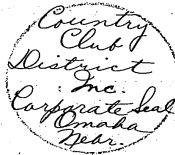 Country
Club
District
Inc.
Corporate Seal
Omaha
Nebr.